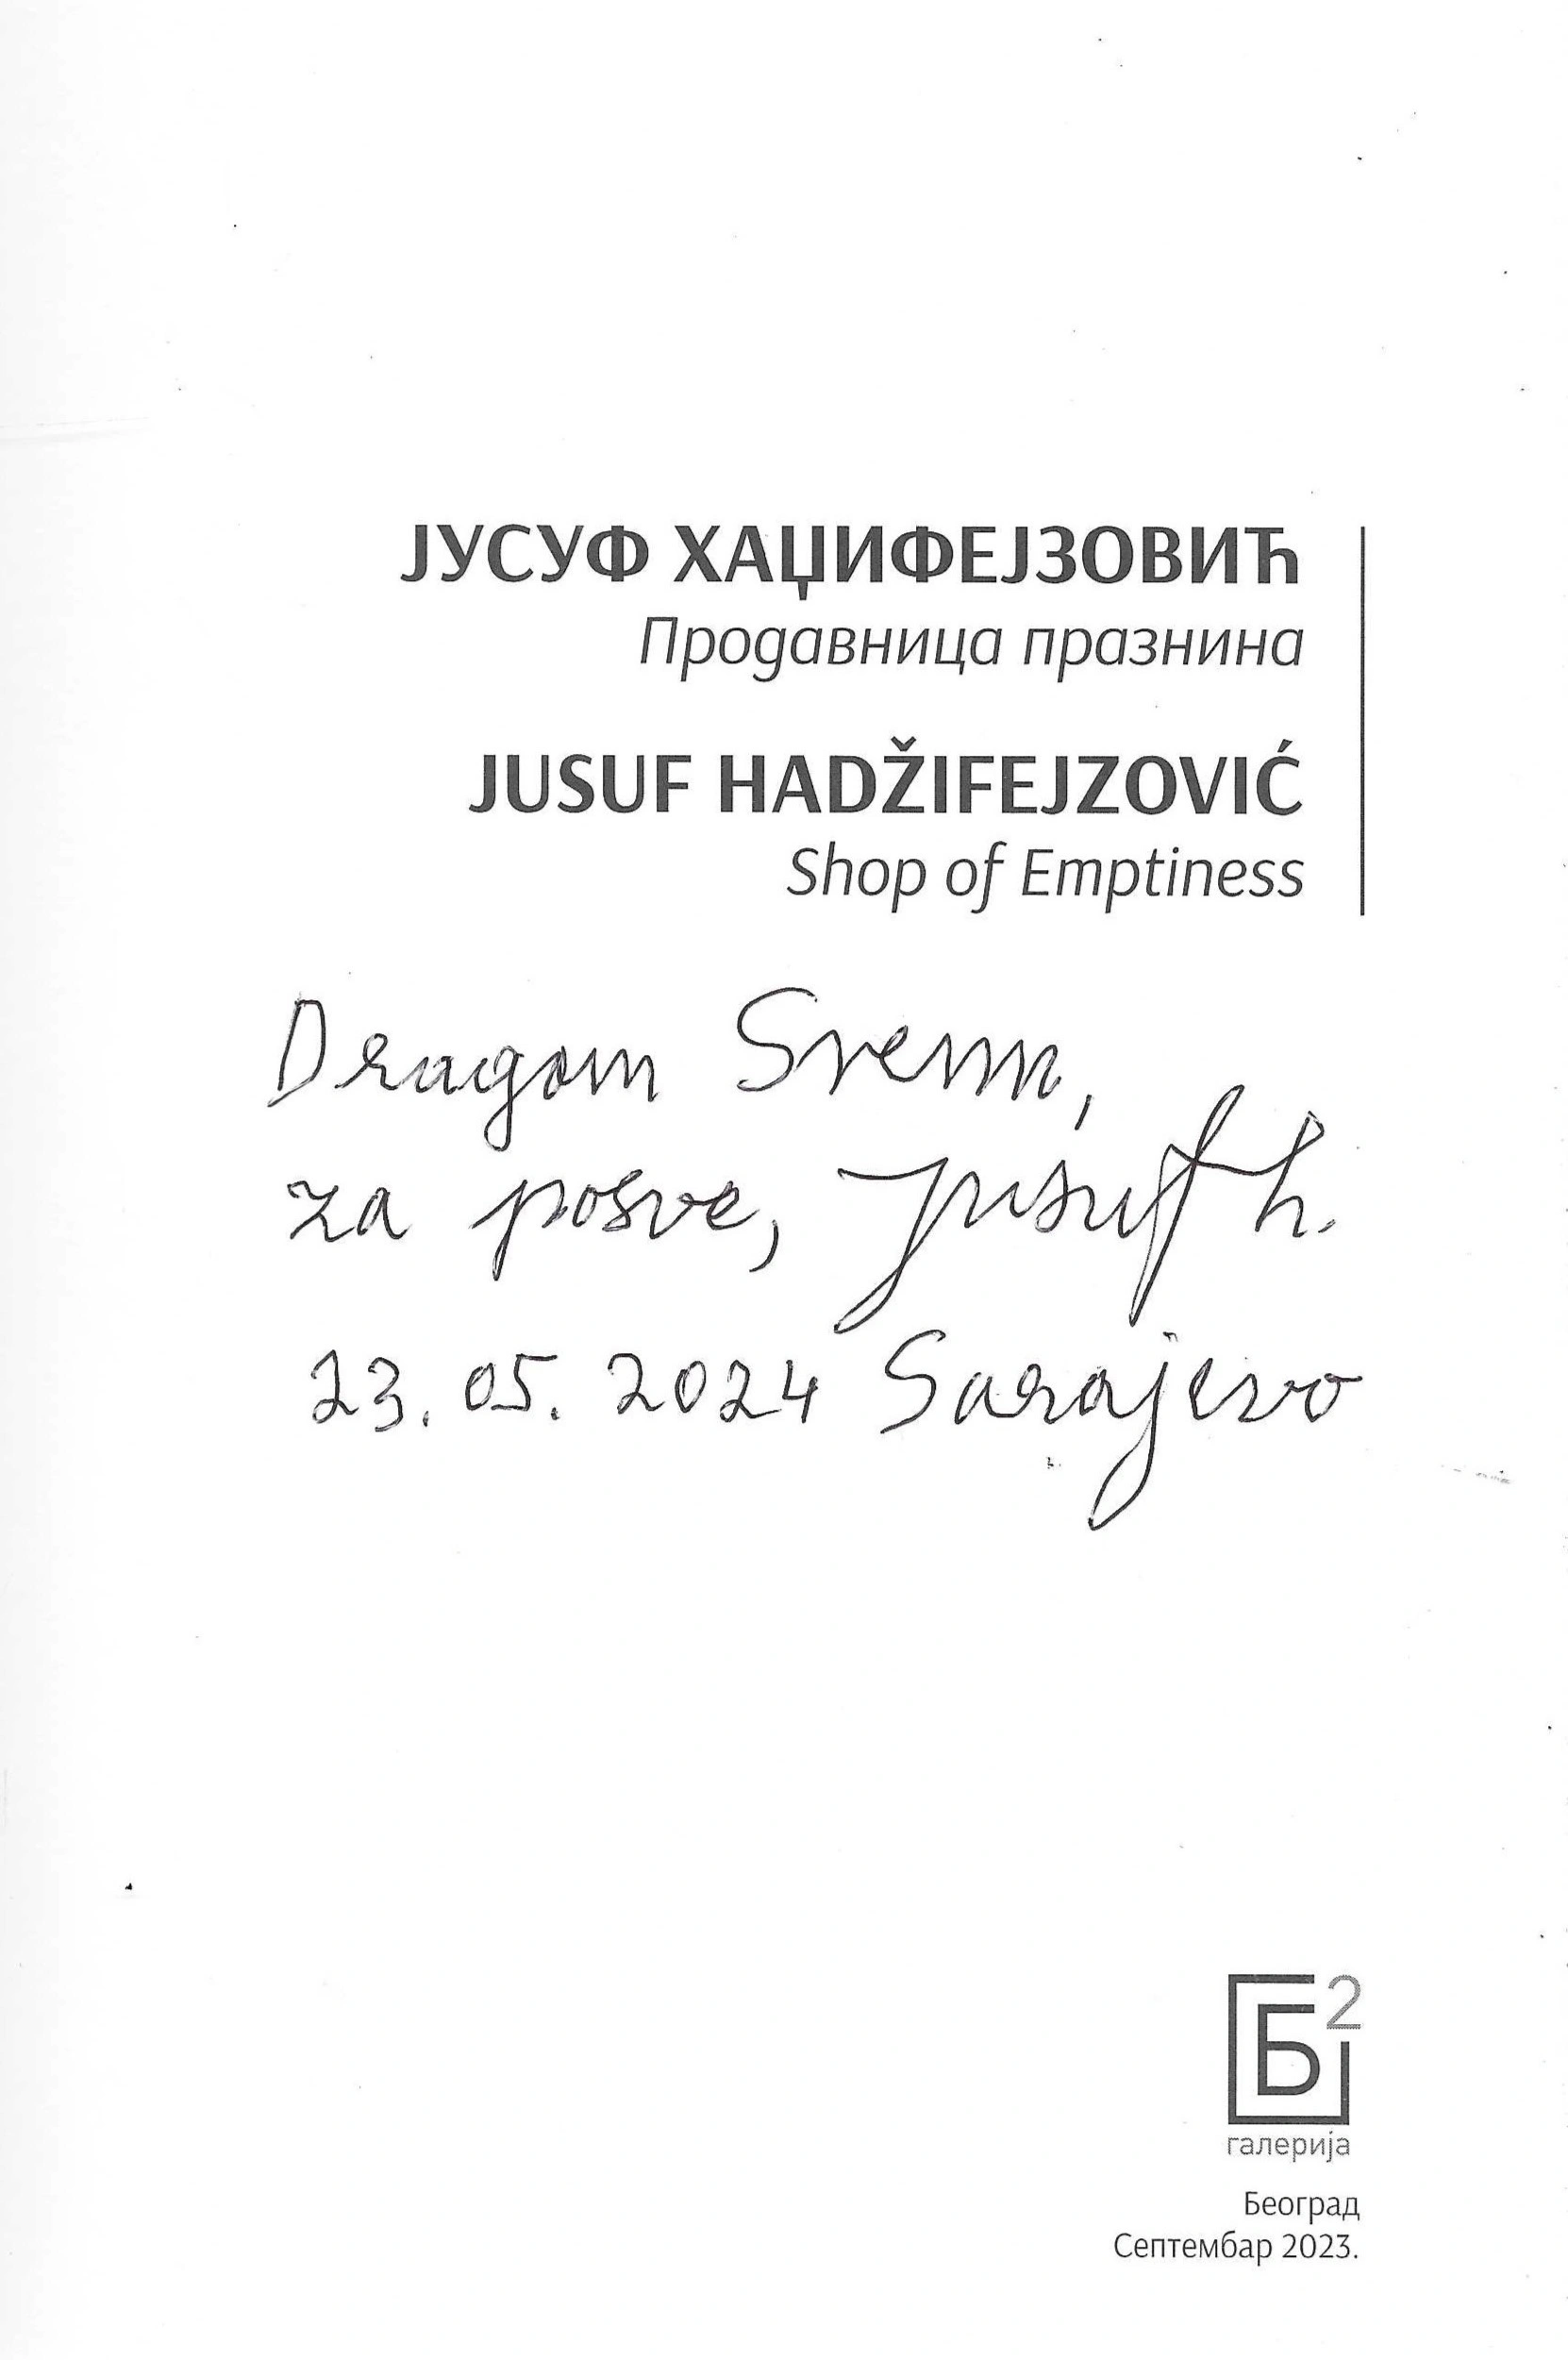 ЈУСУФ ХАЏИФЕЈЗОВИЋ
Продавница празнина
JUSUF HADŽIFEJZOVIĆ
Shop of Emptiness
Dragom
za posve, Jusuf h.
23.05.2024 Sarajevo
Б2
галерија
Београд
Септембар 2023.